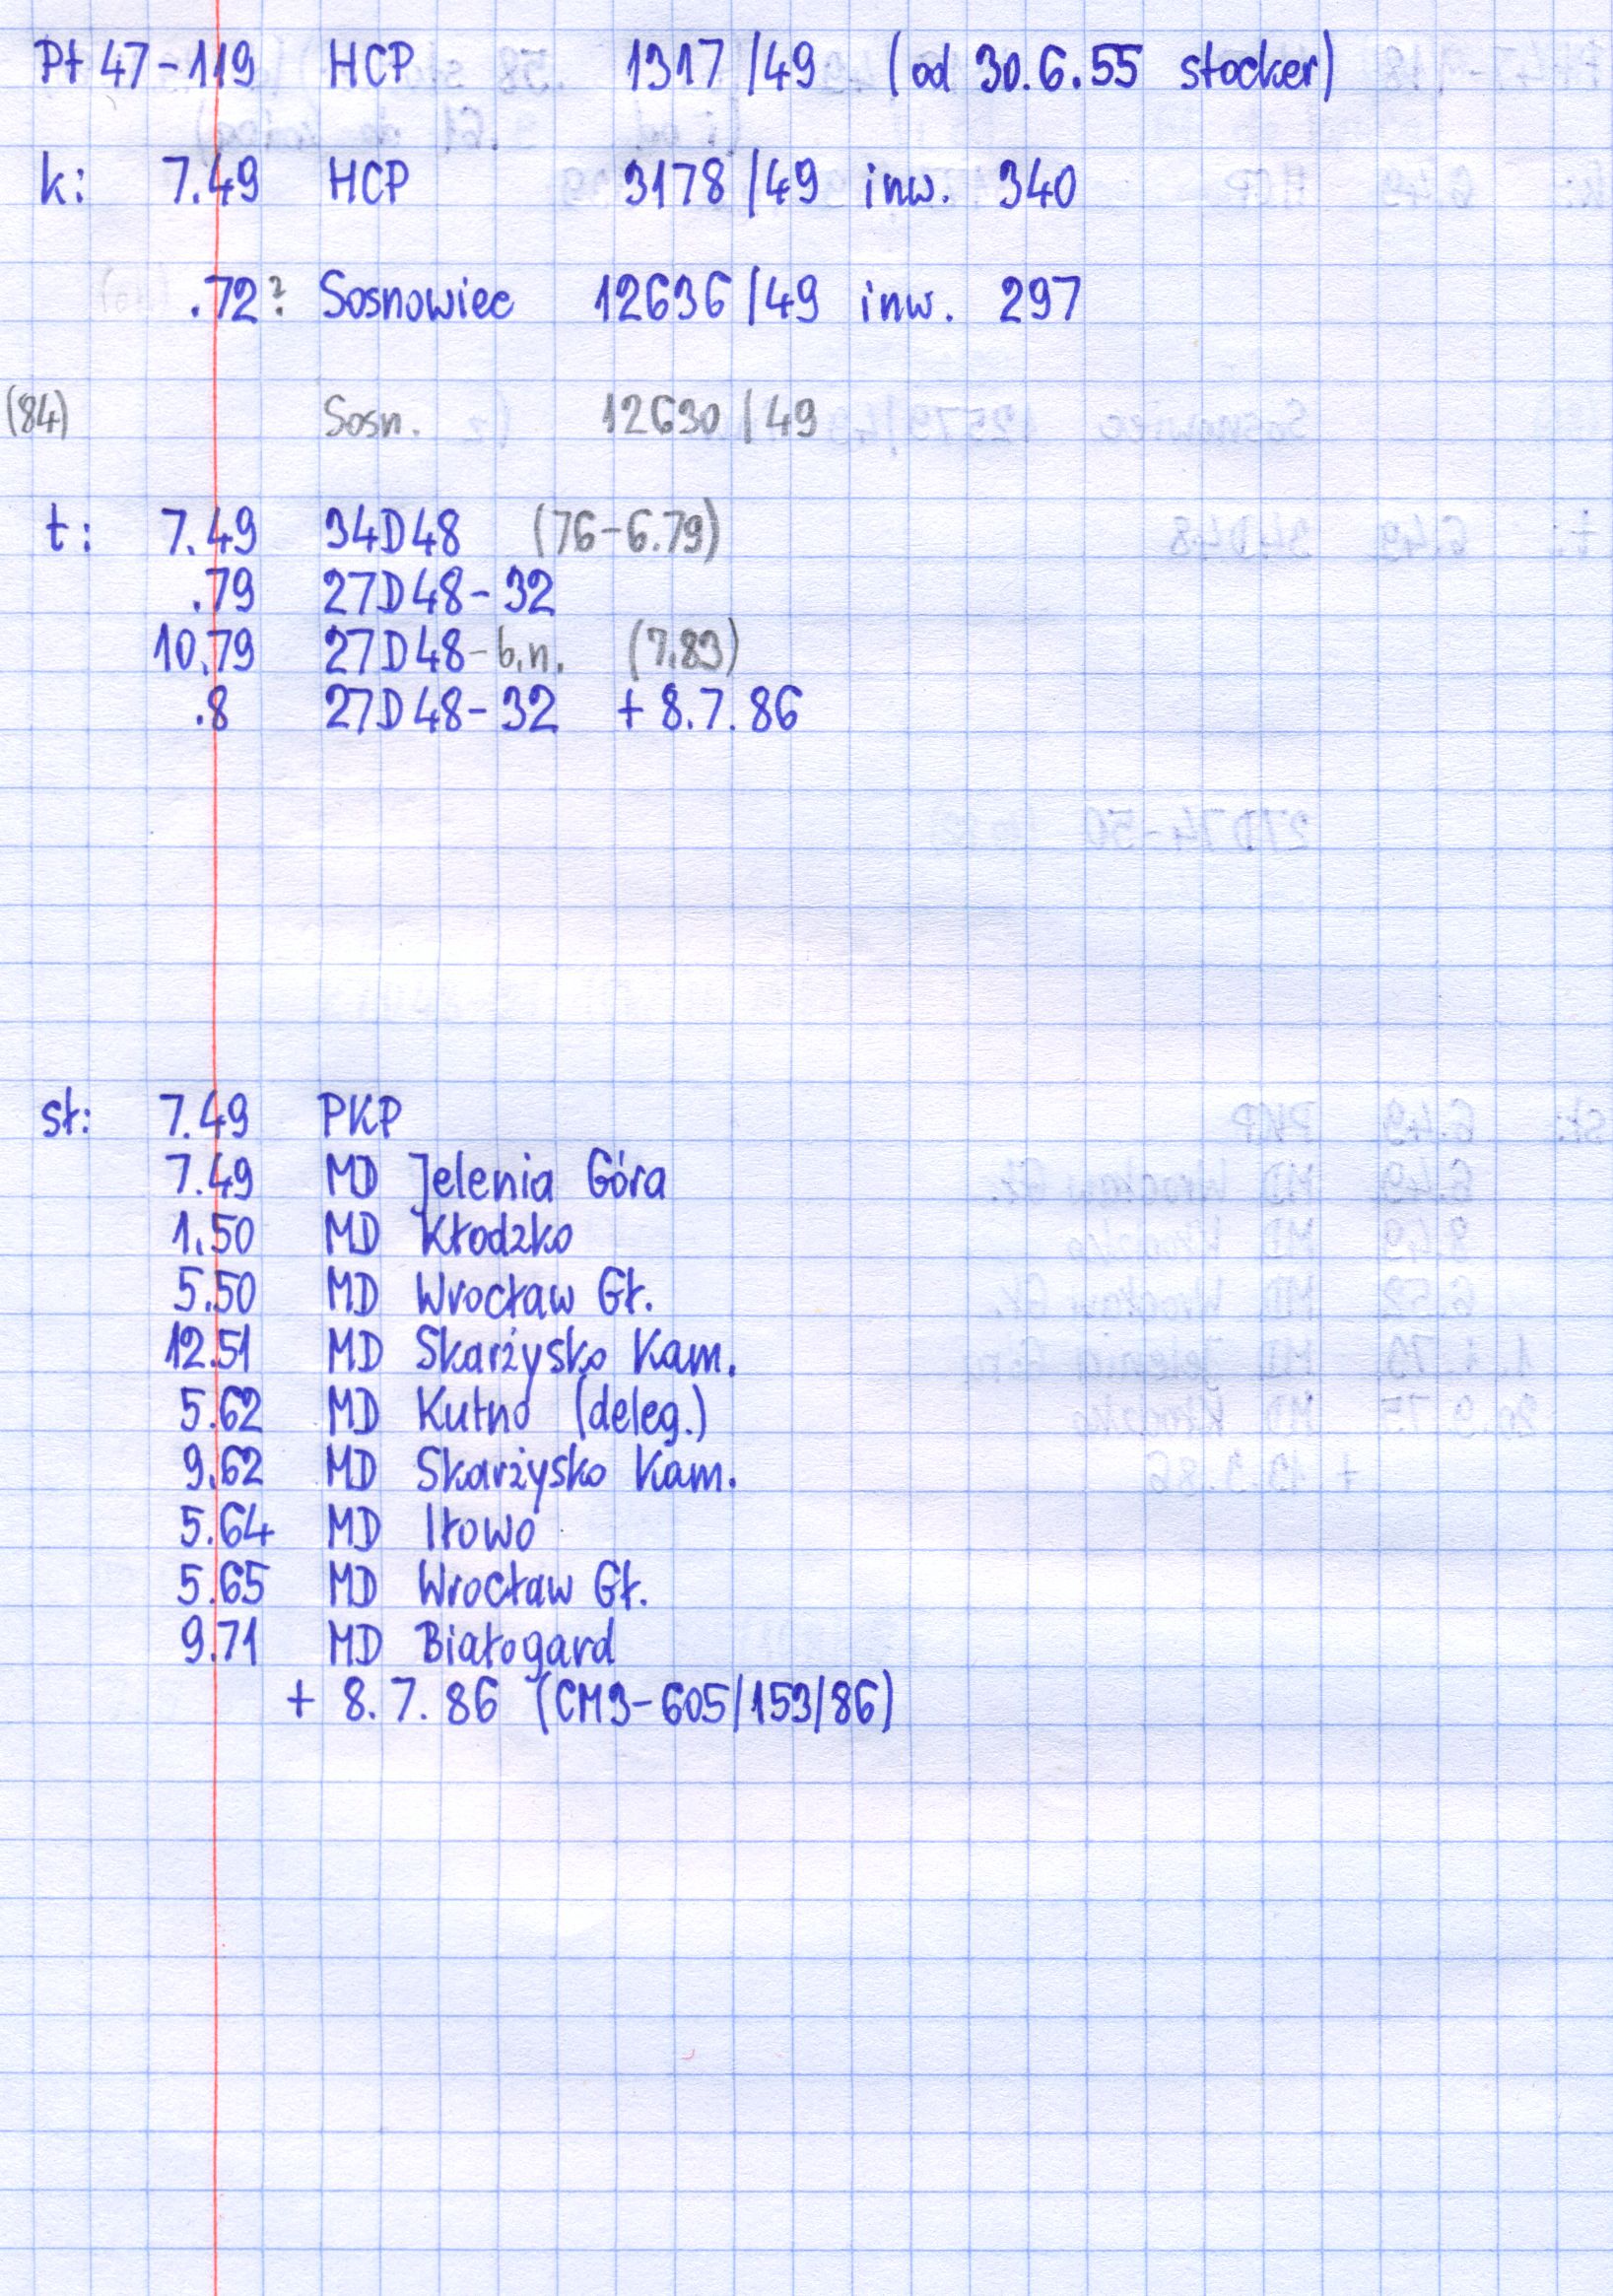 Pt 47-119 HCP 1317/49 (od 30.6.55 stocker)
k: 7.49 HCP 3178/49 inw. 340
.72? Sosnowiec 12636/49 inw. 297
(84) Sosn. 12630/49
t: 7.49 34D48 (76-6.79)
.79 27D48-32
10.79 27D48-b.n. (7.83)
.8 27D48-32 + 8.7.86
sł: 7.49 PKP
7.49 MD Jelenia Góra
1.50 MD Kłodzko
5.50 MD Wrocław Gł.
12.51 MD Skarżysko Kam.
5.62 MD Kutno (deleg.)
9.62 MD Skarżysko Kam.
5.64 MD Iłowo
5.65 MD Wrocław Gł.
9.71 MD Białogard
+ 8.7.86 (CM3-605/153/86)